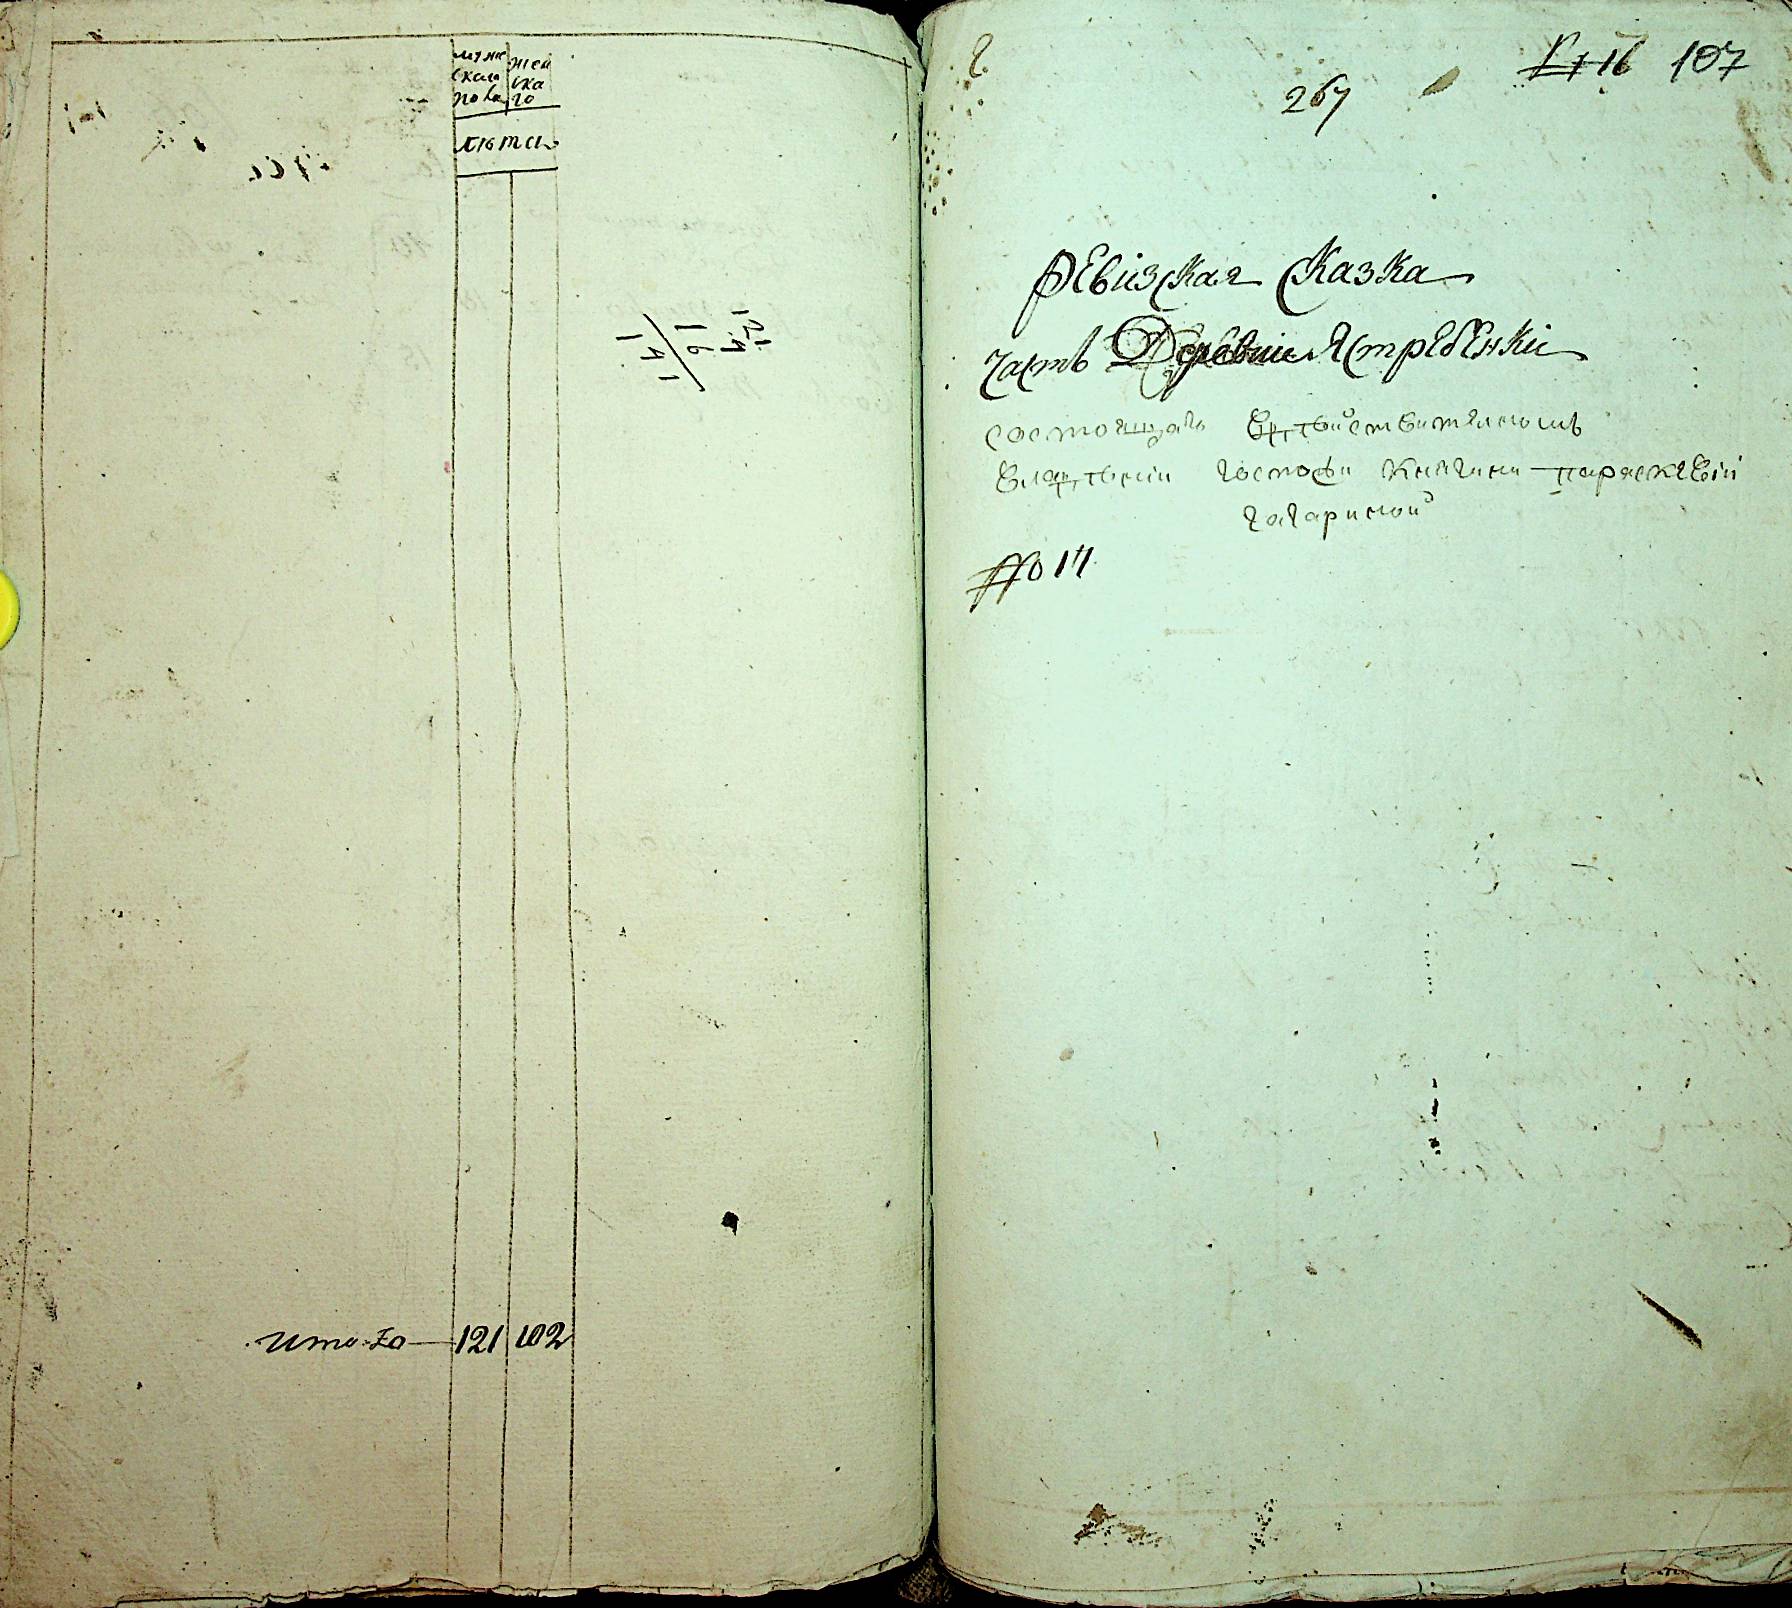 муже
скаго
пола
жен
ска
го
лѣта
121
4
16
141
итого 121 102
267
16 107
Ревизская Сказка
часть Деревни Ястребенки
состоящаго в действительномъ
владѣнии госпожи княгини параскевіи
гагариной
№ 14